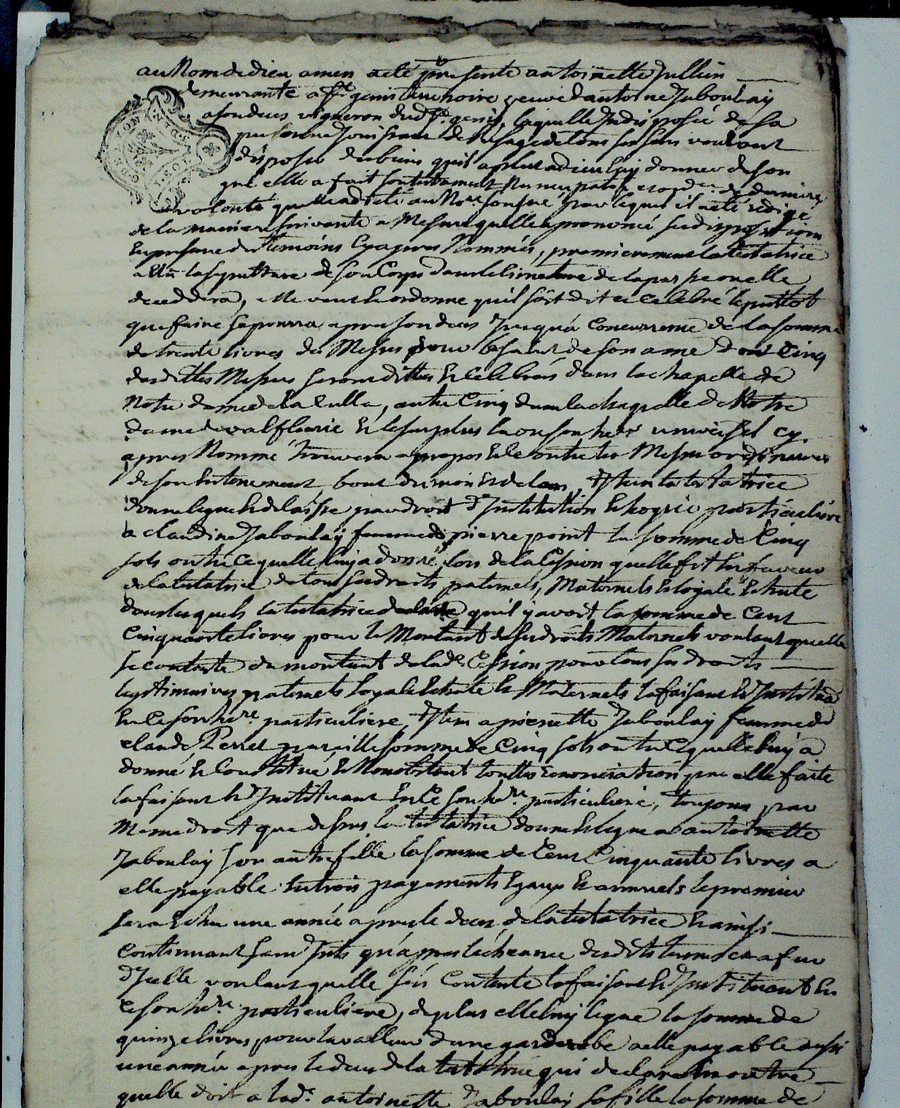 au Nom de dieu amen a eté presente antoinette Jullien
demeurante a St genis terrenoire veuve d'antoine Jaboulay
vigneron dud. St genis, laquelle disposée de sa
personne Jouissant de l'usage de tous ses sens voulant
disposer des biens qu'il a plut a dieu luy donner de son
gré elle a fait son testament Nuncupatif et ord.re de derniere
volonté quelle a dicté au No.re soussigné par lequel il a été rédigé
de la maniere suivante a Mesure quelle a prononcé ses dispositions
en presence des temoins cy apres Nommés, premierement la testatrice
a elu la sepulture de son Corps dans le Cimetiere de la parroisse ou elle
decedera, elle veut et ordonne qu'il soit dit et Celebré le plustot
que faire se pourra apres son deces Jusqu'a Concurrence de la somme
de trente livres des Messes pour le salut de son ame dont Cinq
desdittes Messes seront dittes et Celebrées dans la chapelle de
Notre dame de la Culla, autre Cinq dans la chapelle de Notre
dame de valfleurie et le surplus la ou son her. universel cy
apres Nommé trouvera a propos et ce outre les Messes ordinaires
de son Enterrement bout du mois et de l'an, Item la testatrice
donne legue et delaisse par droit d'Institution et hoirie particuliere
a claudine Jaboulay femme de pierre point la somme de Cinq
sols outre ce quelle luy a donné lors de la Cession quelle fit En faveur
de la testatrice de tous ses droits paternels, Maternels et loyale Echute
dans lesquels la testatrice declare qu'il y avoit la somme de Cent
Cinquante livres pour le Montant de ses droits Maternels voulant quelle
se contente du montant de lade. Cession pour tous ses droits
legitimaires paternels loyale Echute et Maternels la faisant et Instituant
En ce son her. particuliere, Item a pierrette Jaboulay femme de
claude Perret pareille somme de Cinq sols outre ce quelle luy a
donné et Constitué et Nonobstant toutte renonciation par elle faite
la faisant et Instituant En ce son her. particuliere, toujours par
Meme droit que dessus la testatrice donne et legue a antoinette
Jaboulay son autre fille la somme de Cent Cinquante livres a
elle payable En trois payements Egaux et annuels le premier
sera Echu une année apres le deces de la testatrice et ainsi
Continuant sans Interets qu'apres l'écheance desdits termes
d'Icelle voulant quelle soit Contente la faisant et Instituant En
ce son her. particuliere, de plus elle luy legue la somme de
quinze livres pour la valleur d'une garderobe a elle payable aussi
une année apres le deces de la testatrice qui declare En outre
quelle doit a lad. antoinette Jaboulay sa fille la somme de